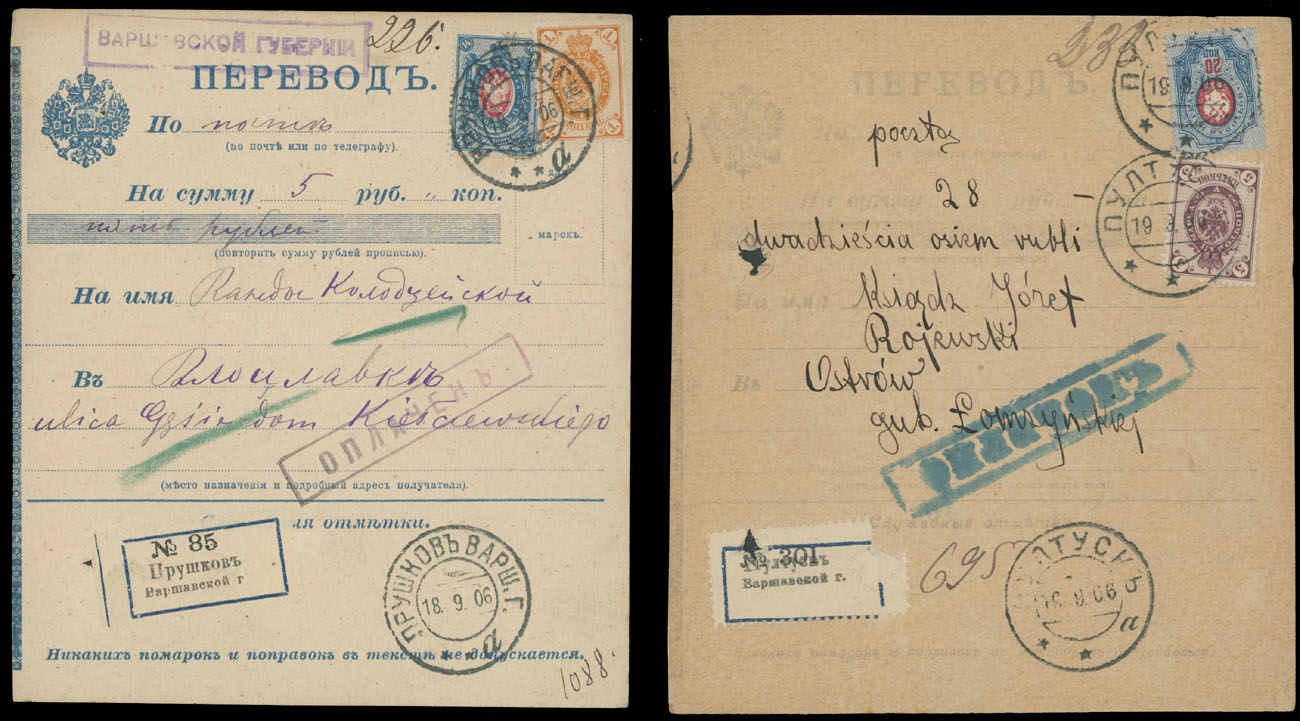 ВАРШАВСКОЙ ГУБЕРНІИ
226.
ПЕРЕВОДЪ.
По почтѣ
(по почтѣ или по телеграфу).
На сумму 5 руб. „ коп.
пять рублей
марокъ.
(повторить сумму рублей прописью).
На имя Ванды Колодзейской
Въ Влоцлавкъ
ulica Gęsia dom
ОПЛАЧЕНЪ.
(мѣсто назначенія и подробный адресъ получателя).
ля отмѣтки.
№ 85
Прушковъ
Варшавской г
ПРУШКОВЪ ВАРШ. Г.
18. 9. 06
а
Никакихъ помарокъ и поправокъ въ текстѣ не допускается.
1088.
ПЕРЕВОДЪ.
20 КОП
ПУЛТУ
19 9. 06
pocztą
28 –
ПУЛТУС
19 9.
5
dwadzieścia osiem rubli
Ksiądz Józef
Rojewski
Ostrów
gub. Łomżyńskiej
ОПЛАЧЕНЪ
Служебныя отмѣтки
№ 301
Пултускъ
Варшавской г.
695
ПУЛТУСКЪ
19 9 06
а